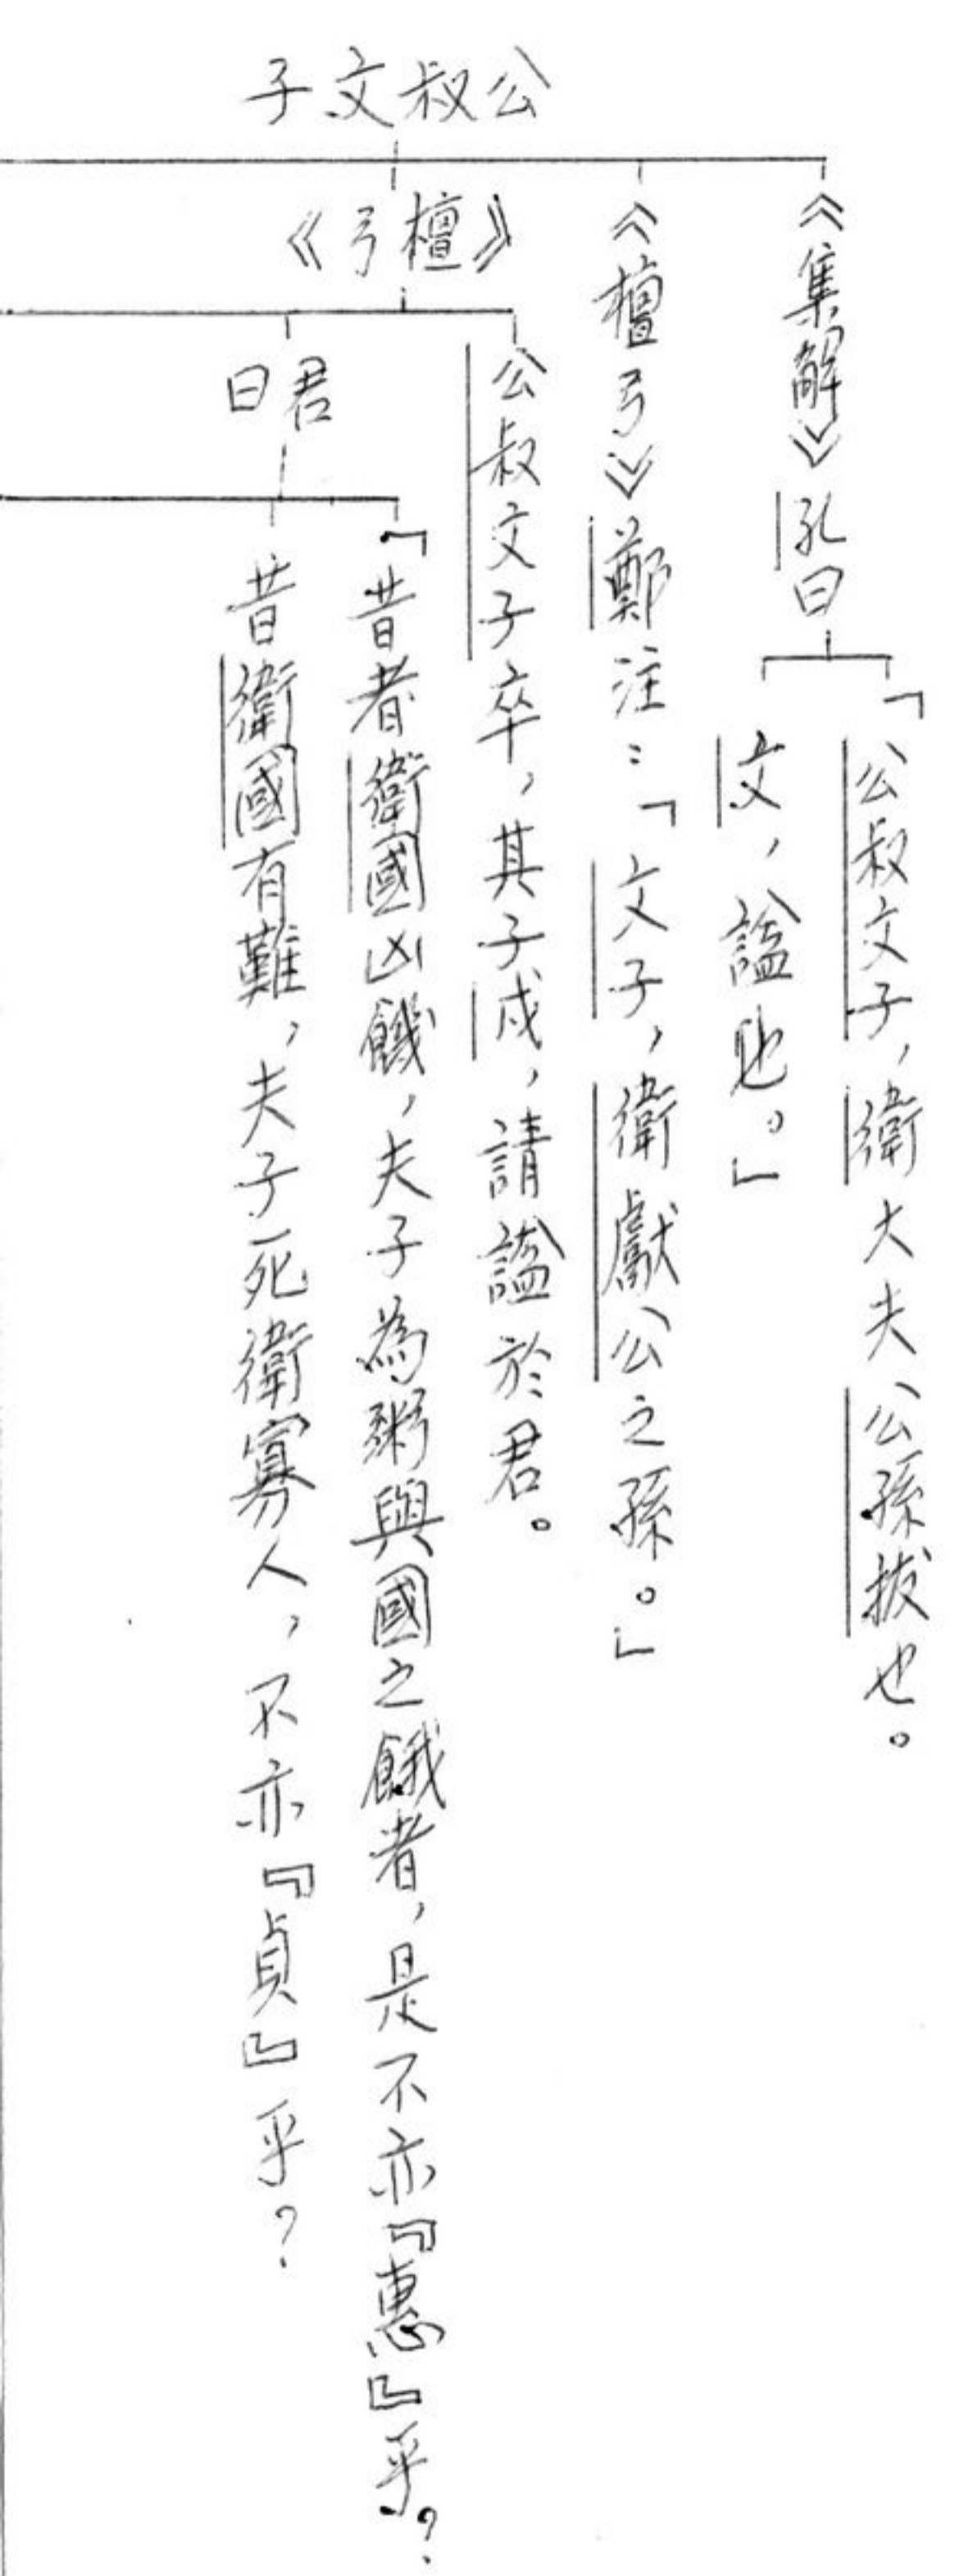 公叔文子
《集解》孔曰
「公叔文子，衛大夫公孫拔也。
文，諡也。」
《檀弓》鄭注：「文子，衛獻公之孫。」
《檀弓》
公叔文子卒，其子戍，請諡於君。
君曰
「昔者衛國凶饑，夫子為粥與國之餓者，是不亦『惠』乎？
昔衛國有難，夫子死衛寡人，不亦『貞』乎？